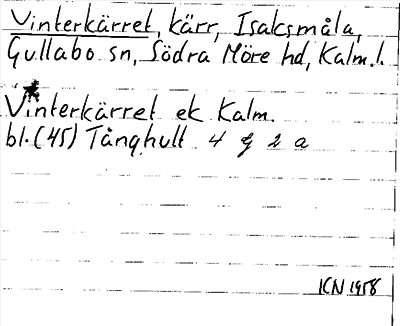 Vinterkärret, kärr, Isaksmåla,
Gullabo sn, Södra Möre hd, Kalm. l.
Vinterkärret ek Kalm.
bl. (45) Tånghult 4 g 2 a
ICN 1958